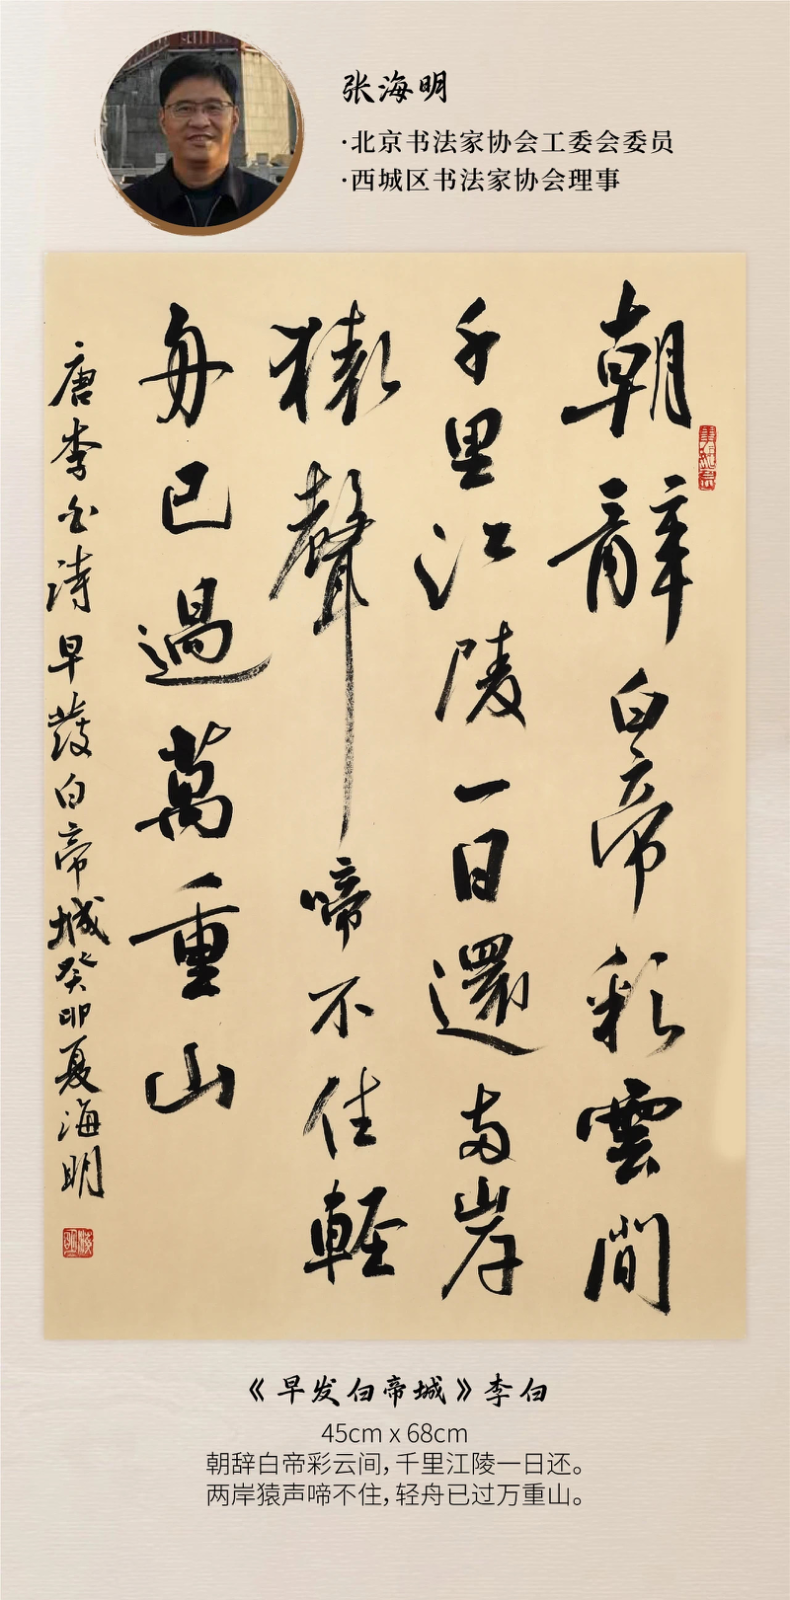 张海明
·北京书法家协会工委会委员
·西城区书法家协会理事
朝辞白帝彩雲間
千里江陵一日還两岸
猿聲啼不住輕
舟已過萬重山
唐李白诗早發白帝城癸卯夏海明
《早发白帝城》李白
45cm x 68cm
朝辞白帝彩云间，千里江陵一日还。
两岸猿声啼不住，轻舟已过万重山。